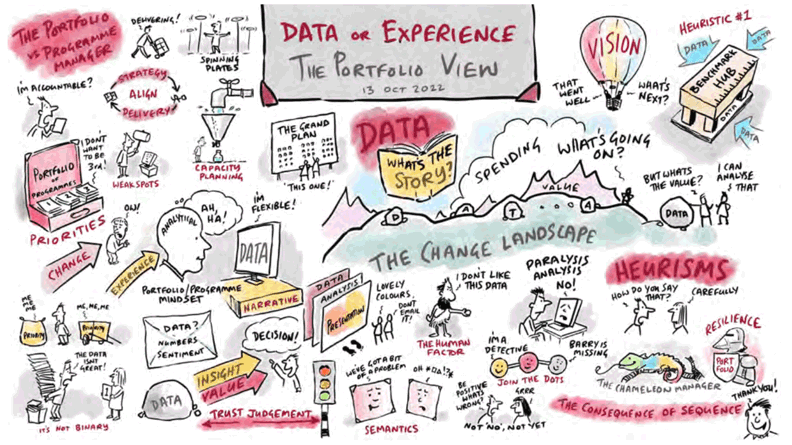 THE PORTFOLIO
vs PROGRAMME
MANAGER
DELIVERING!
SPINNING
PLATES
I'M ACCOUNTABLE?
STRATEGY
ALIGN
DELIVERY
I DON'T
WANT
TO BE
3rd!
PORTFOLIO
OF
PROGRAMMES
PRIORITIES
WEAKSPOTS
CAPACITY
PLANNING
DATA OR EXPERIENCE
THE PORTFOLIO VIEW
13 OCT 2022
THE GRAND
PLAN
"THIS ONE!"
DATA
WHAT'S THE
STORY?
VISION
THAT
WENT
WELL...
WHAT'S
NEXT?
HEURISTIC #1
DATA
DATA
BENCHMARK
HUB
DATA
DATA
SPENDING
WHAT'S GOING
ON?
VALUE
DATA
THE CHANGE LANDSCAPE
BUT WHATS
THE VALUE?
I CAN
ANALYSE
THAT
DATA
CHANGE
OW!
EXPERIENCE
ANALYTICAL
AH,
HA!
I'M
FLEXIBLE!
DATA
NARRATIVE
PORTFOLIO/PROGRAMME
MINDSET
ME
ME
PRIORITY
ME, ME, ME
PRIORITY
THE DATA
ISN'T
GREAT!
IT'S NOT BINARY
DATA?
NUMBERS
SENTIMENT
DATA
INSIGHT
VALUE
DECISION!
TRUST JUDGEMENT
DATA
ANALYSIS
PRESENTATION
LOVELY
COLOURS
DON'T
EMAIL
IT!
I DON'T LIKE
THIS DATA
THE HUMAN
FACTOR
PARALYSIS
ANALYSIS
NO!
WE'VE GOT A BIT
OF A PROBLEM
OH #DA!!*
SEMANTICS
I'M A
DETECTIVE
BARRY IS
MISSING
JOIN THE DOTS
BE
POSITIVE
WHATS
WRONG?
GRRR
NOT 'NO', NOT YET
HEURISMS
HOW DO YOU SAY
THAT?
CAREFULLY
RESILIENCE
PORT
FOLIO
THE CHAMELEON MANAGER
THE CONSEQUENCE OF SEQUENCE
THANK YOU!